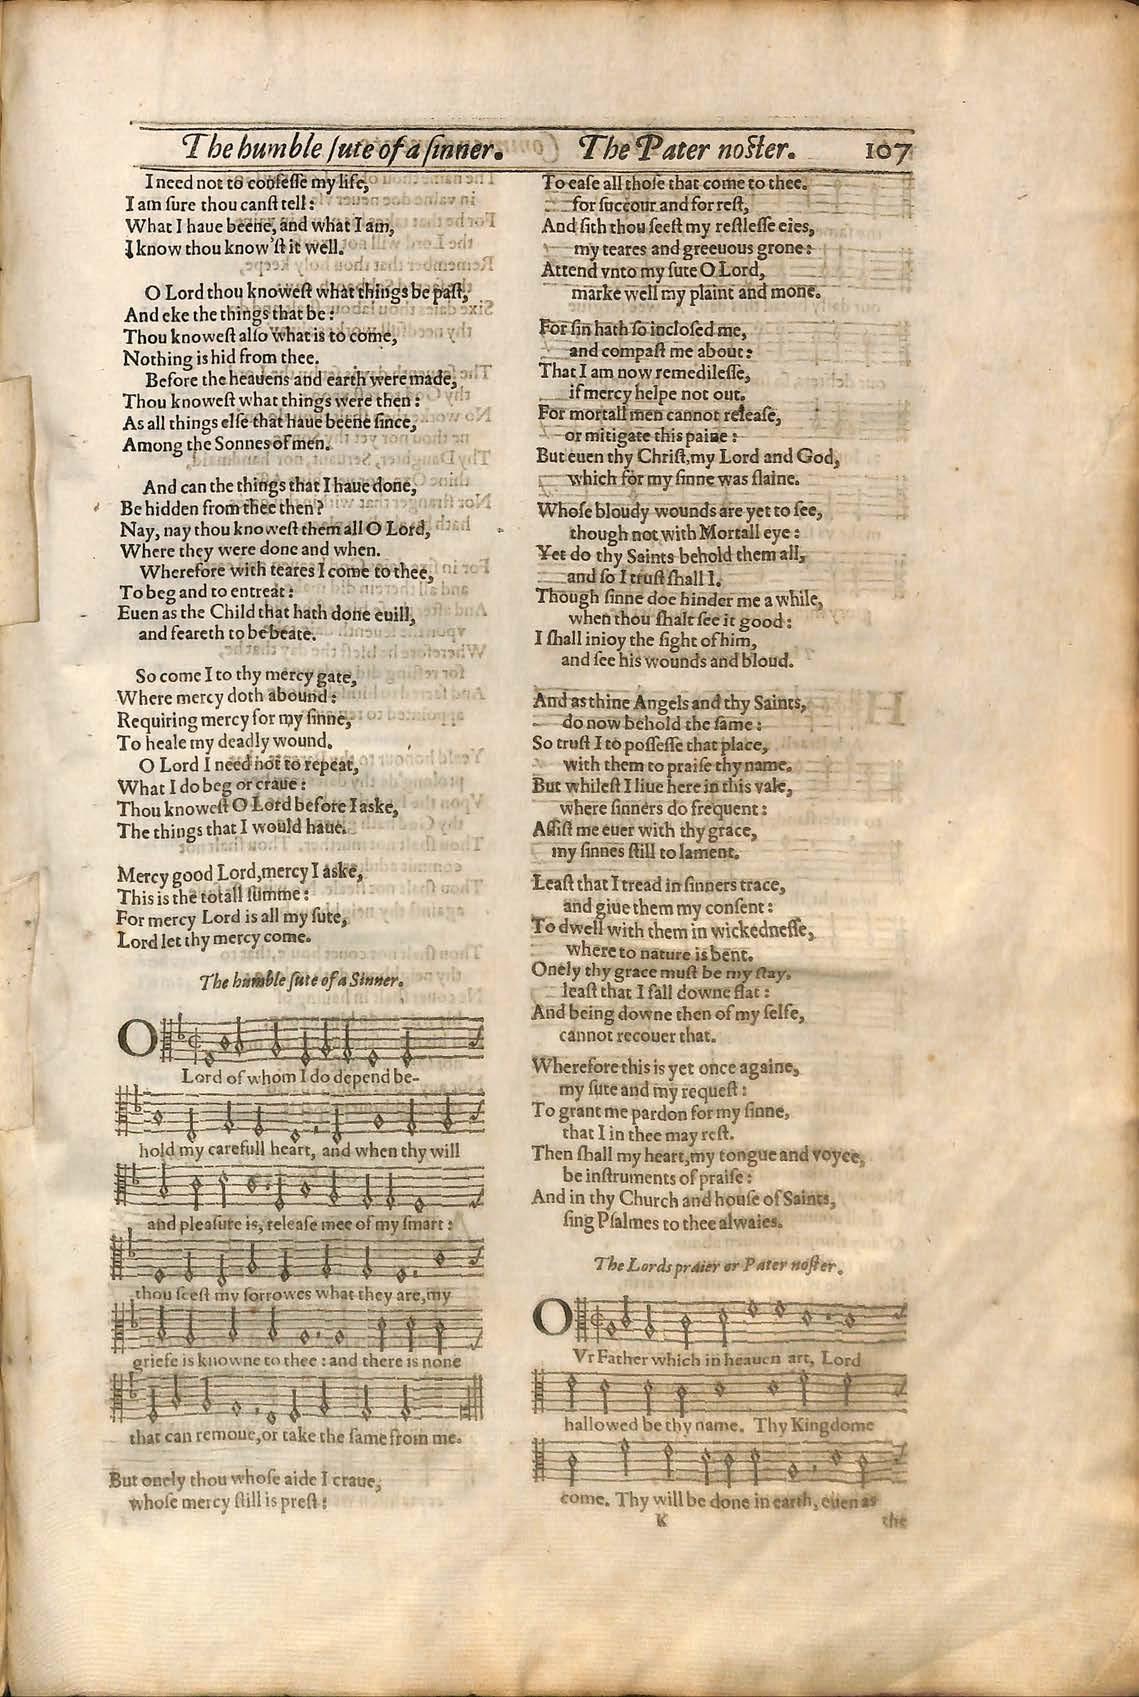 The humble ſute of a ſinner. The Pater noſter. 107
I need not to confeſſe my life,
I am ſure thou canſt tell:
What I haue beene, and what I am,
I know thou know'ſt it well.
O Lord thou knoweſt what things be paſt,
And eke the things that be:
Thou knoweſt alſo what is to come,
Nothing is hid from thee.
Before the heauens and earth were made,
Thou knoweſt what things were then:
As all things elſe that haue beene ſince,
Among the Sonnes of men.
And can the things that I haue done,
Be hidden from thee then?
Nay, nay thou knoweſt them all O Lord,
Where they were done and when.
Wherefore with teares I come to thee,
To beg and to entreat:
Euen as the Child that hath done euill,
and feareth to be beate.
So come I to thy mercy gate,
Where mercy doth abound:
Requiring mercy for my ſinne,
To heale my deadly wound.
O Lord I need not to repeat,
What I do beg or craue:
Thou knoweſt O Lord before I aske,
The things that I would haue.
Mercy good Lord, mercy I aske,
This is the totall ſumme:
For mercy Lord is all my ſute,
Lord let thy mercy come.
The humble ſute of a Sinner.
O
Lord of whom I do depend be-
hold my carefull heart, and when thy will
and pleaſure is, releaſe mee of my ſmart:
thou ſeeſt my ſorrowes what they are, my
griefe is knowne to thee: and there is none
that can remoue, or take the ſame from me.
But onely thou whoſe aide I craue,
whoſe mercy ſtill is preſt:
To eaſe all thoſe that come to thee.
for ſuccour and for reſt,
And ſith thou ſeeſt my reſtleſſe eies,
my teares and greeuous grone:
Attend vnto my ſute O Lord,
marke well my plaint and mone.
For ſin hath ſo incloſed me,
and compaſt me about:
That I am now remedileſſe,
if mercy helpe not out.
For mortall men cannot releaſe,
or mitigate this paine:
But euen thy Chriſt, my Lord and God,
which for my ſinne was ſlaine.
Whoſe bloudy wounds are yet to ſee,
though not with Mortall eye:
Yet do thy Saints behold them all,
and ſo I truſt ſhall I.
Though ſinne doe hinder me a while,
when thou ſhalt ſee it good:
I ſhall inioy the ſight of him,
and ſee his wounds and bloud.
And as thine Angels and thy Saints,
do now behold the ſame:
So truſt I to poſſeſſe that place,
with them to praiſe thy name.
But whileſt I liue here in this vale,
where ſinners do frequent:
Aſſiſt me euer with thy grace,
my ſinnes ſtill to lament.
Leaſt that I tread in ſinners trace,
and giue them my conſent:
To dwell with them in wickedneſſe,
where to nature is bent.
Onely thy grace muſt be my ſtay.
leaſt that I fall downe flat:
And being downe then of my ſelfe,
cannot recouer that.
Wherefore this is yet once againe,
my ſute and my requeſt:
To grant me pardon for my ſinne,
that I in thee may reſt.
Then ſhall my heart, my tongue and voyce,
be inſtruments of praiſe:
And in thy Church and houſe of Saints,
ſing Pſalmes to thee alwaies.
The Lords praier or Pater noſter.
O
Vr Father which in heauen art, Lord
hallowed be thy name. Thy Kingdome
come. Thy will be done in earth, euen as
K the